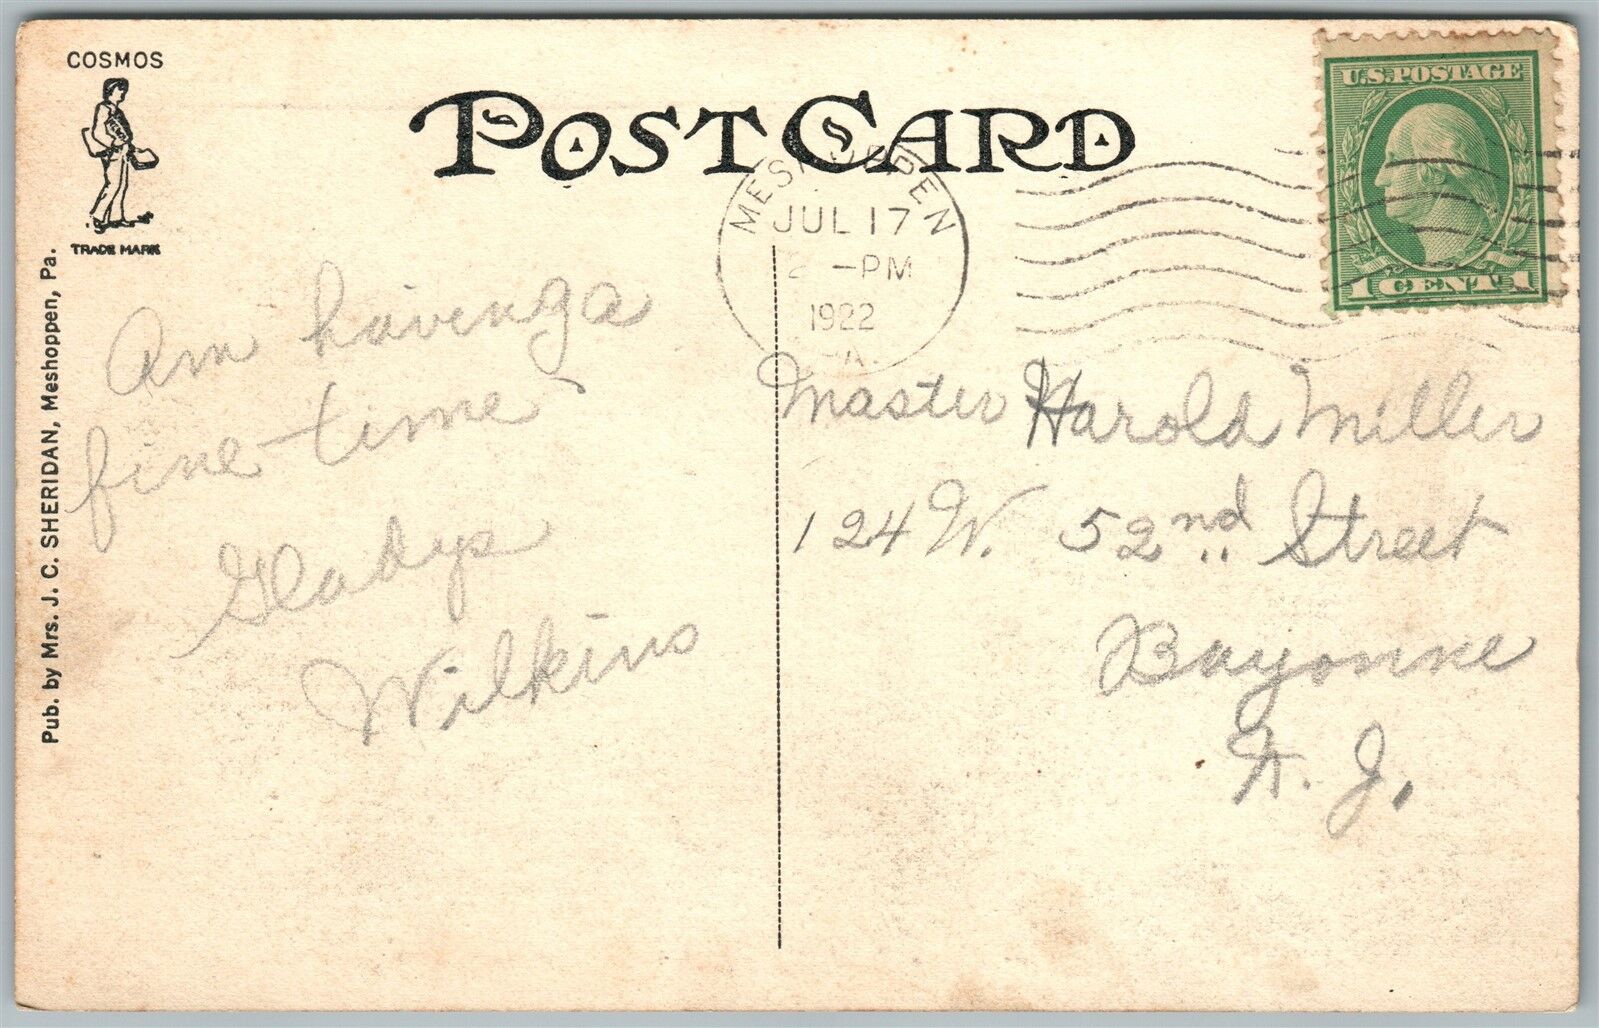 COSMOS
TRADE MARK
POST CARD
U.S. POSTAGE
1 CENT 1
MESHOPPEN
JUL 17
2 -PM
1922
Pub. by Mrs. J. C. SHERIDAN, Meshoppen, Pa.
Am having a
fine time
Gladys
Wilkins
Master Harold Miller
124 W. 52nd Street
Bayonne
N. J.